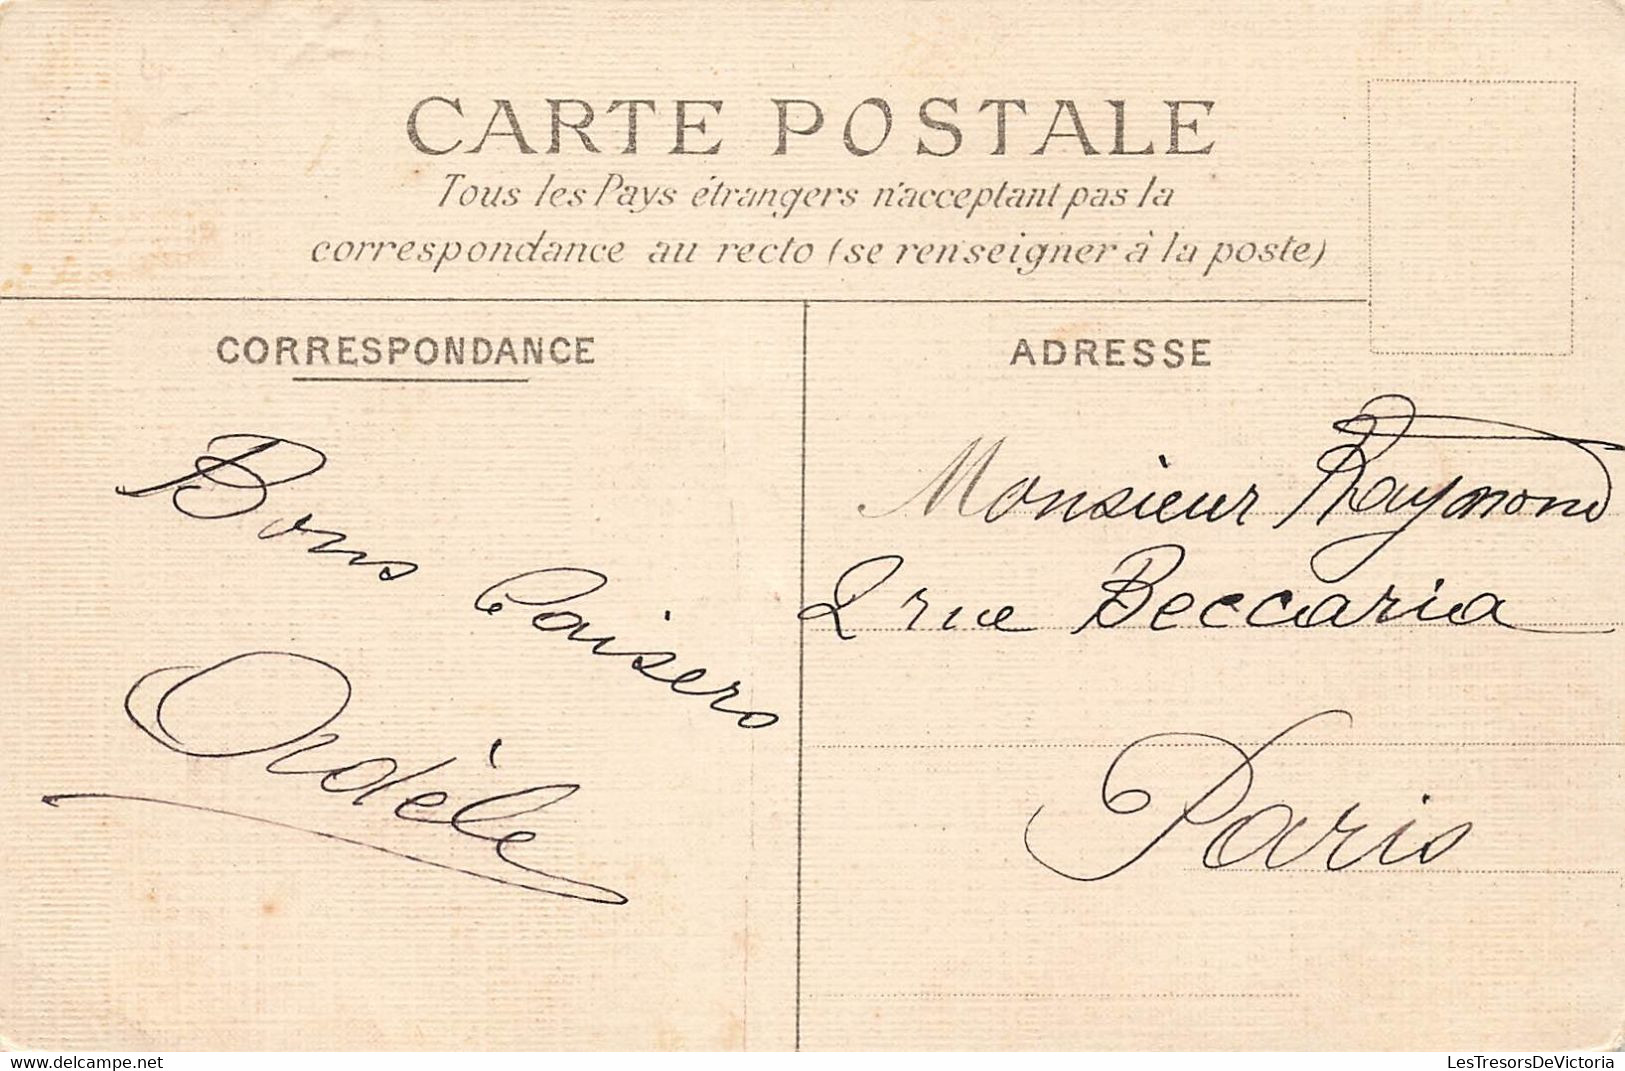 CARTE POSTALE
Tous les Pays étrangers n'acceptant pas la
correspondance au recto (se renseigner à la poste)
CORRESPONDANCE
Bons baisers
Adèle
ADRESSE
Monsieur Raymond
2 rue Beccaria
Paris
LesTresorsDeVictoria